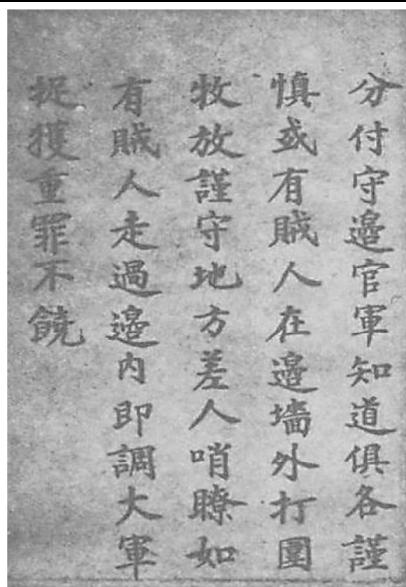 分付守邊官軍知道俱各謹
慎或有賊人在邊墻外打圍
牧放謹守地方差人哨瞭如
有賊人走過邊内即調大軍
捉獲重罪不饒